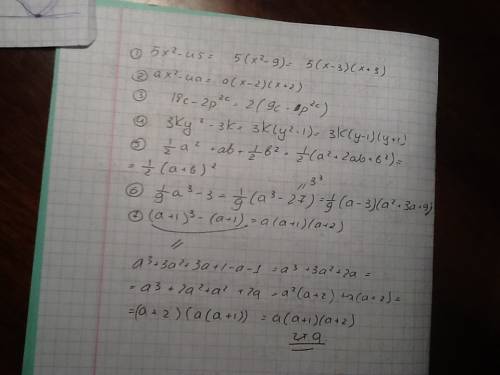 ① 5x²-45= 5(x²-9)= 5(x-3)(x+3)
② ax²-4a= a(x-2)(x+2)
③ 18c-2p²ᶜ= 2(9c-p²ᶜ)
④ 3Ky²-3K= 3K(y²-1)= 3K(y-1)(y+1)
⑤ 1/2 a²+ab+1/2 b²= 1/2(a²+2ab+b²)=
= 1/2 (a+b)²
// 3³
⑥ 1/9 a³-3= 1/9(a³-27)= 1/9(a-3)(a²+3a+9)
⑦ (a+1)³-(a+1)=a(a+1)(a+2)
//
a³+3a²+3a+1-a-1=a³+3a²+2a=
= a³+2a²+a²+2a=a²(a+2)+a(a+2)=
=(a+2)(a(a+1))=a(a+1)(a+2)